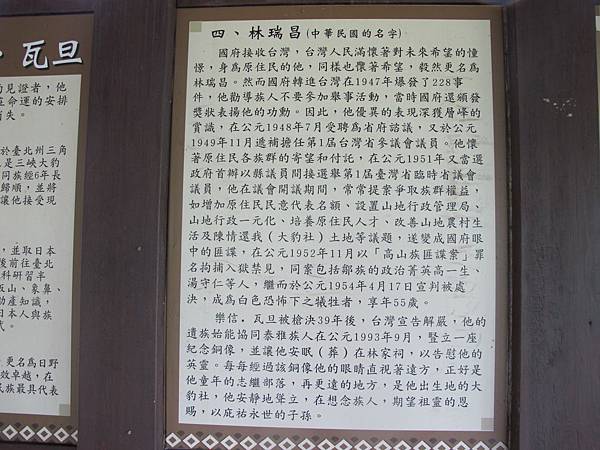 · 瓦旦
的見證者，他
命運的安排
消失。
於臺北州三角
是三峽大豹
同族經6年長
歸順，並將
讓他接受現
，並取日本
後前往臺北
科研習半
板山、象鼻、
助產知識，
日本人與族
式。
更名為日野
效卓越，在
民族最具代表
四、林瑞昌(中華民國的名字)
國府接收台灣，台灣人民滿懷著對未來希望的憧
憬，身為原住民的他，同樣也懷著希望，毅然更名為
林瑞昌。然而國府轉進台灣在1947年爆發了228事
件，他勸導族人不要參加舉事活動，當時國府還頒發
獎狀表揚他的功勳。因此，他優異的表現深獲層峰的
賞識，在公元1948年7月受聘為省府諮議，又於公元
1949年11月遞補擔任第1屆台灣省參議會議員。他懷
著原住民各族群的寄望和付託，在公元1951年又當選
政府首辦以縣議員間接選舉第1屆臺灣省臨時省議會
議員，他在議會開議期間，常常提案爭取族群權益，
如增加原住民民意代表名額、設置山地行政管理局、
山地行政一元化、培養原住民人才、改善山地農村生
活及陳情還我（大豹社）土地等議題，遂變成國府眼
中的匪諜，在公元1952年11月以「高山族匪諜案」罪
名拘捕入獄禁見，同案包括鄒族的政治菁英高一生、
湯守仁等人，繼而於公元1954年4月17日宣判被處
決，成為白色恐怖下之犧牲者，享年55歲。
樂信．瓦旦被槍決39年後，台灣宣告解嚴，他的
遺族始能協同泰雅族人在公元1993年9月，豎立一座
紀念銅像，並讓他安眠（葬）在林家祠，以告慰他的
英靈。每每經過該銅像他的眼睛直視著遠方，正好是
他童年的志繼部落，再更遠的地方，是他出生地的大
豹社，他安靜地聳立，在想念族人，期望祖靈的恩
賜，以庇祐永世的子孫。